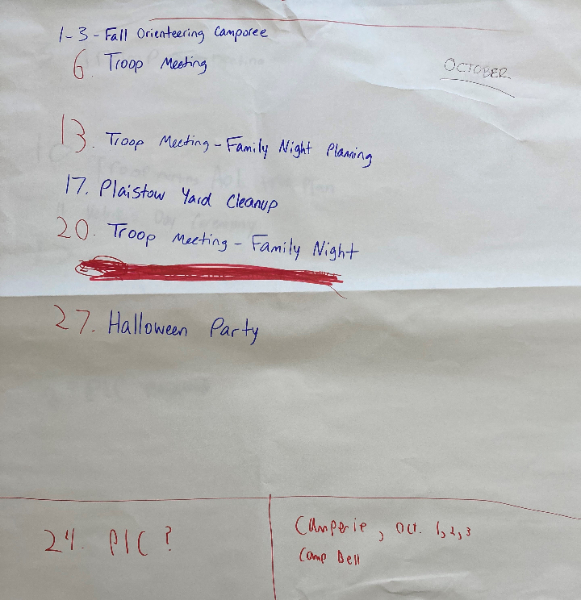 1-3- Fall Orienteering Camporee
6. Troop Meeting
OCTOBER
13. Troop Meeting - Family Night Planning
17. Plaistow Yard Cleanup
20. Troop Meeting - Family Night
27. Halloween Party
24. PIC?
Camperie, Oct. 1,2,3
Camp Bell